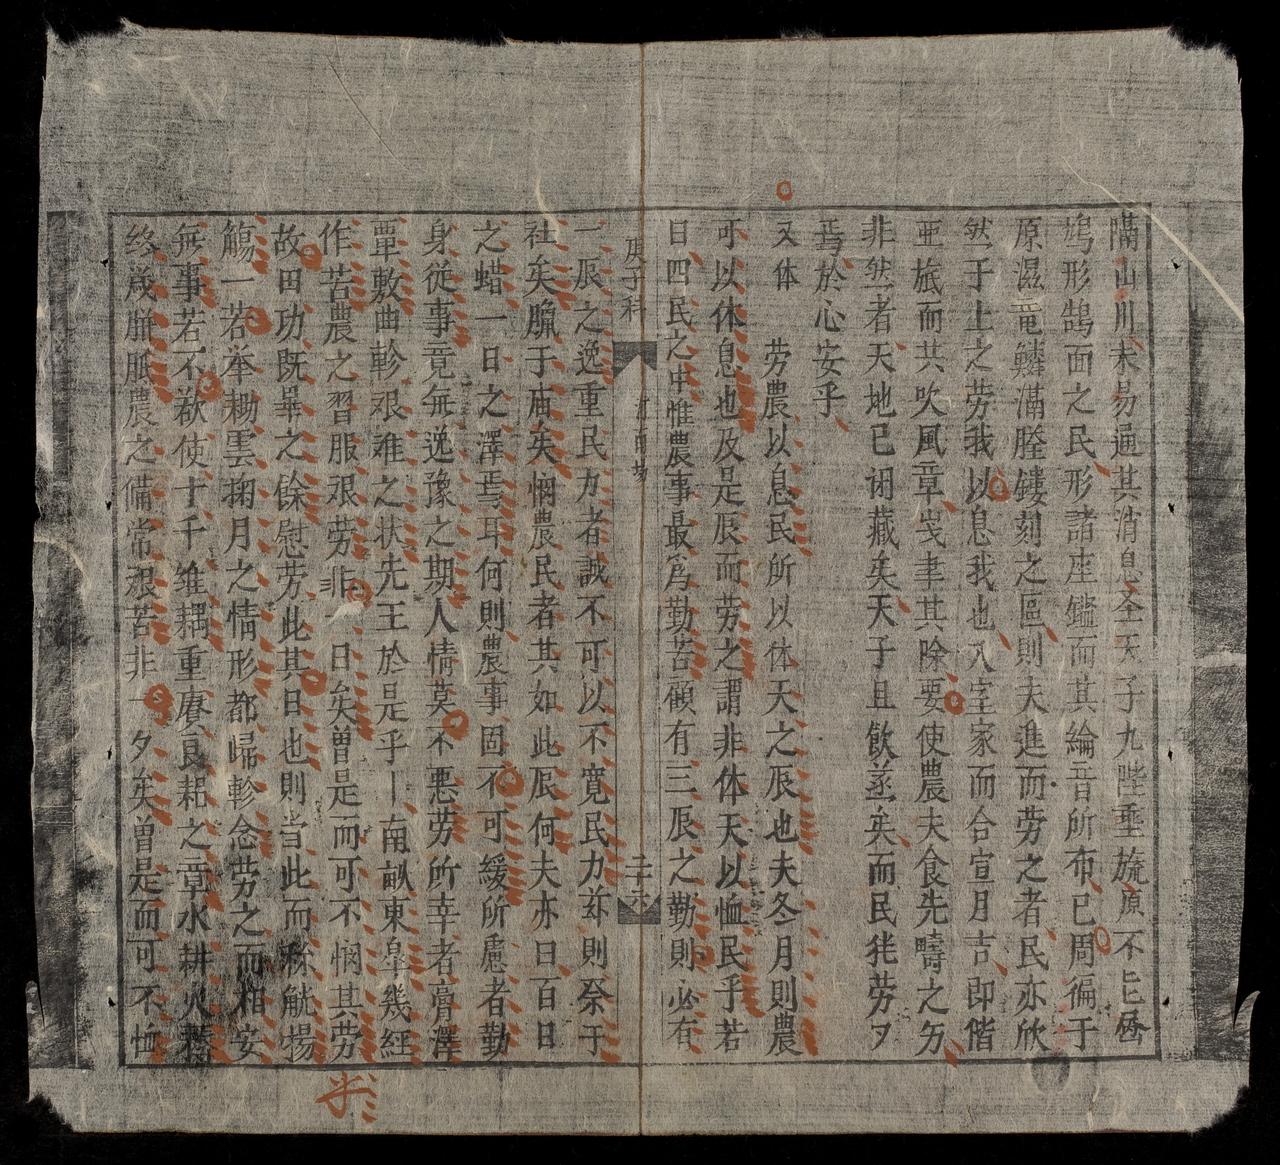 隔山川未易通其消息圣天子九陛垂旒原不忘
鳩形鵠面之民形諸座鑑而其綸音所布已周徧于
原濕竜鱗滿塍鏤刻之區則夫進而劳之者民亦欣
然于上之劳我以息我也入室家而合宣月吉即偕
亜旅而共吹風章曵聿其除要使農夫食先疇之
非然者天地已闭藏矣天子且飲蒸矣而民徒劳
焉於心安乎
又体　劳農以息民所以体天之辰也夫冬月則農
可以休息也及是辰而劳之謂非体天以恤民乎若
曰四民之中惟農事最爲勤苦顧有三辰之勤則必有
庚子科　二十六
一辰之逸重民力者誠不可以不寛民力茲則祭于
社矣臘于庙矣悯農民者其如此辰何夫亦曰百日
之蜡一日之澤焉耳何則農事固不可緩所慮者勤
身從事竟無逸豫之期人情莫不悪劳所幸者膏澤
覃敷曲軫艰难之状先王於是乎南畝東皐幾經
作苦農之習服艰劳非一日矣曽是而可不悯其劳
故田功既畢之餘慰劳此其日也則当此而稱觥揚
觴一若举耡雲掬月之情形都歸軫念劳之而相安
無事若不欲使十千維耦重賡良耜之章水耕火
终歳胼胝農之備常艰苦非一夕矣曽是而可不恤